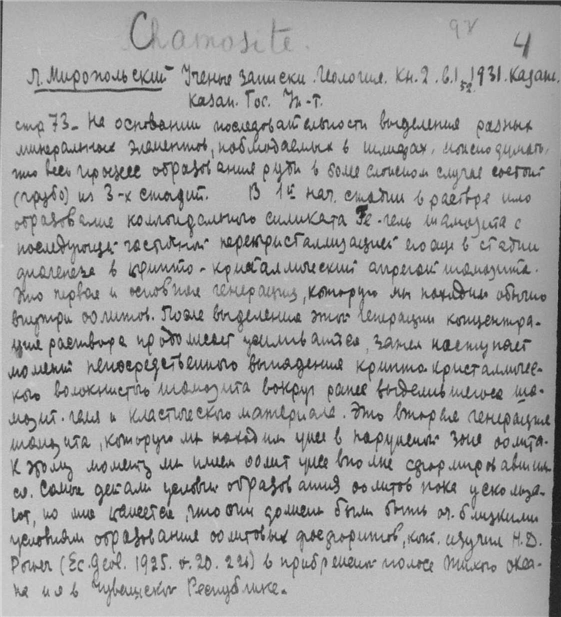 Chamosite.
4
Л. Миропольский Ученые записки. Геология. Кн. 2. в. 1, 1931. Казань.
Казан. Гос. Ун-т.
стр 73 – На основании последовательности выделения разных
минеральных элементов, наблюдаемых в шлифах, можно думать,
что весь процесс образования руды в более сложном случае состоит
(грубо) из 3-х стадий. В 1й нач. стадии в растворе шло
образование коллоидального силиката Fe-гель шамозита с
последующей частичной перекристаллизацией его еще в стадии
диагенеза в крипто-кристаллический агрегат шамозита.
Это первая и основная генерация, которую мы находим обычно
внутри оолитов. После выделения этой генерации концентра-
ция раствора продолжает усиливаться, затем наступает
момент непосредственного выпадения крипто кристалличес-
кого волокнистого шамозита вокруг ранее выделившегося ша-
мозит-геля и кластического материала. Это вторая генерация
шамозита, которую мы находим уже в наружной зоне оолита.
К этому моменту мы имеем оолит уже вполне сформировавшим
ся. Самые детали условий образования оолитов пока ускольза-
ют, но мне кажется, что они должны были быть оч. близкими
условиям образования оолитовых фосфоритов, кот. изучил H.D.
(Ec. Geol. 1925. v. 20. 22) в прибрежной полосе Тихого океа-
на и я в Чувашской Республике.